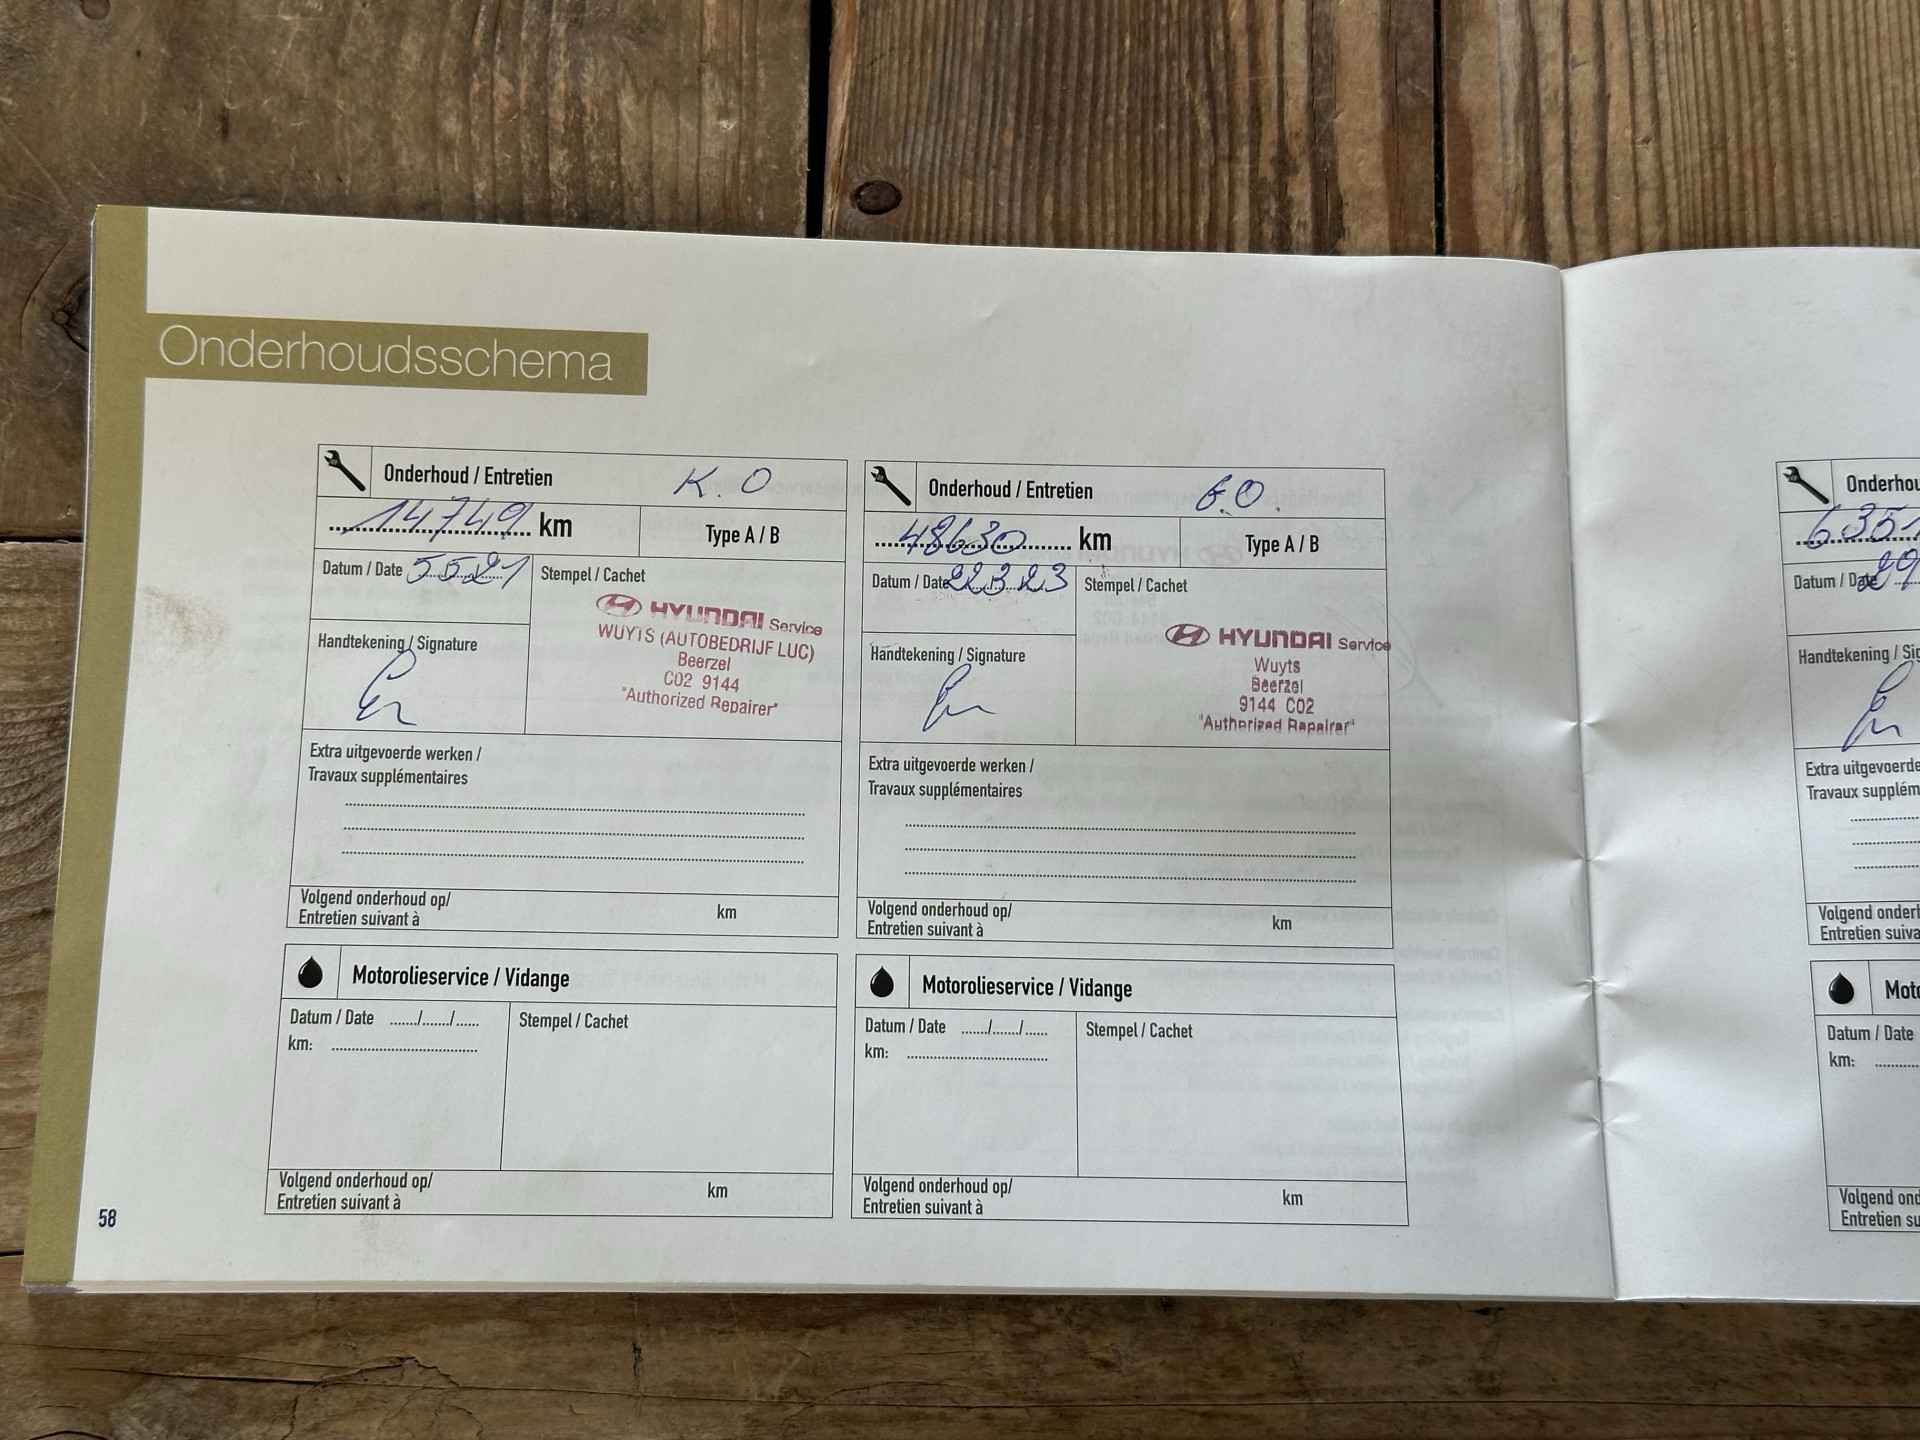 Onderhoudsschema
Onderhoud / Entretien K.O
14749 km Type A / B
Datum / Date 5.5.21 Stempel / Cachet
HYUNDAI Service
WUYTS (AUTOBEDRIJF LUC)
Beerzel
C02 9144
"Authorized Repairer"
Handtekening / Signature
Extra uitgevoerde werken /
Travaux supplémentaires
Volgend onderhoud op/
Entretien suivant à km
Motorolieservice / Vidange
Datum / Date ....../....../...... Stempel / Cachet
km:
Volgend onderhoud op/
Entretien suivant à km
Onderhoud / Entretien G.O.
48630 km Type A / B
Datum / Date 22.3.23 Stempel / Cachet
HYUNDAI Service
Wuyts
Beerzel
9144 C02
"Authorized Repairer"
Handtekening / Signature
Extra uitgevoerde werken /
Travaux supplémentaires
Volgend onderhoud op/
Entretien suivant à km
Motorolieservice / Vidange
Datum / Date ....../....../...... Stempel / Cachet
km:
Volgend onderhoud op/
Entretien suivant à km
58
Onderhou
6351
Datum / Date 29
Handtekening / Sig
Extra uitgevoerde
Travaux supplém
Volgend onderh
Entretien suiva
Moto
Datum / Date
km:
Volgend ond
Entretien su